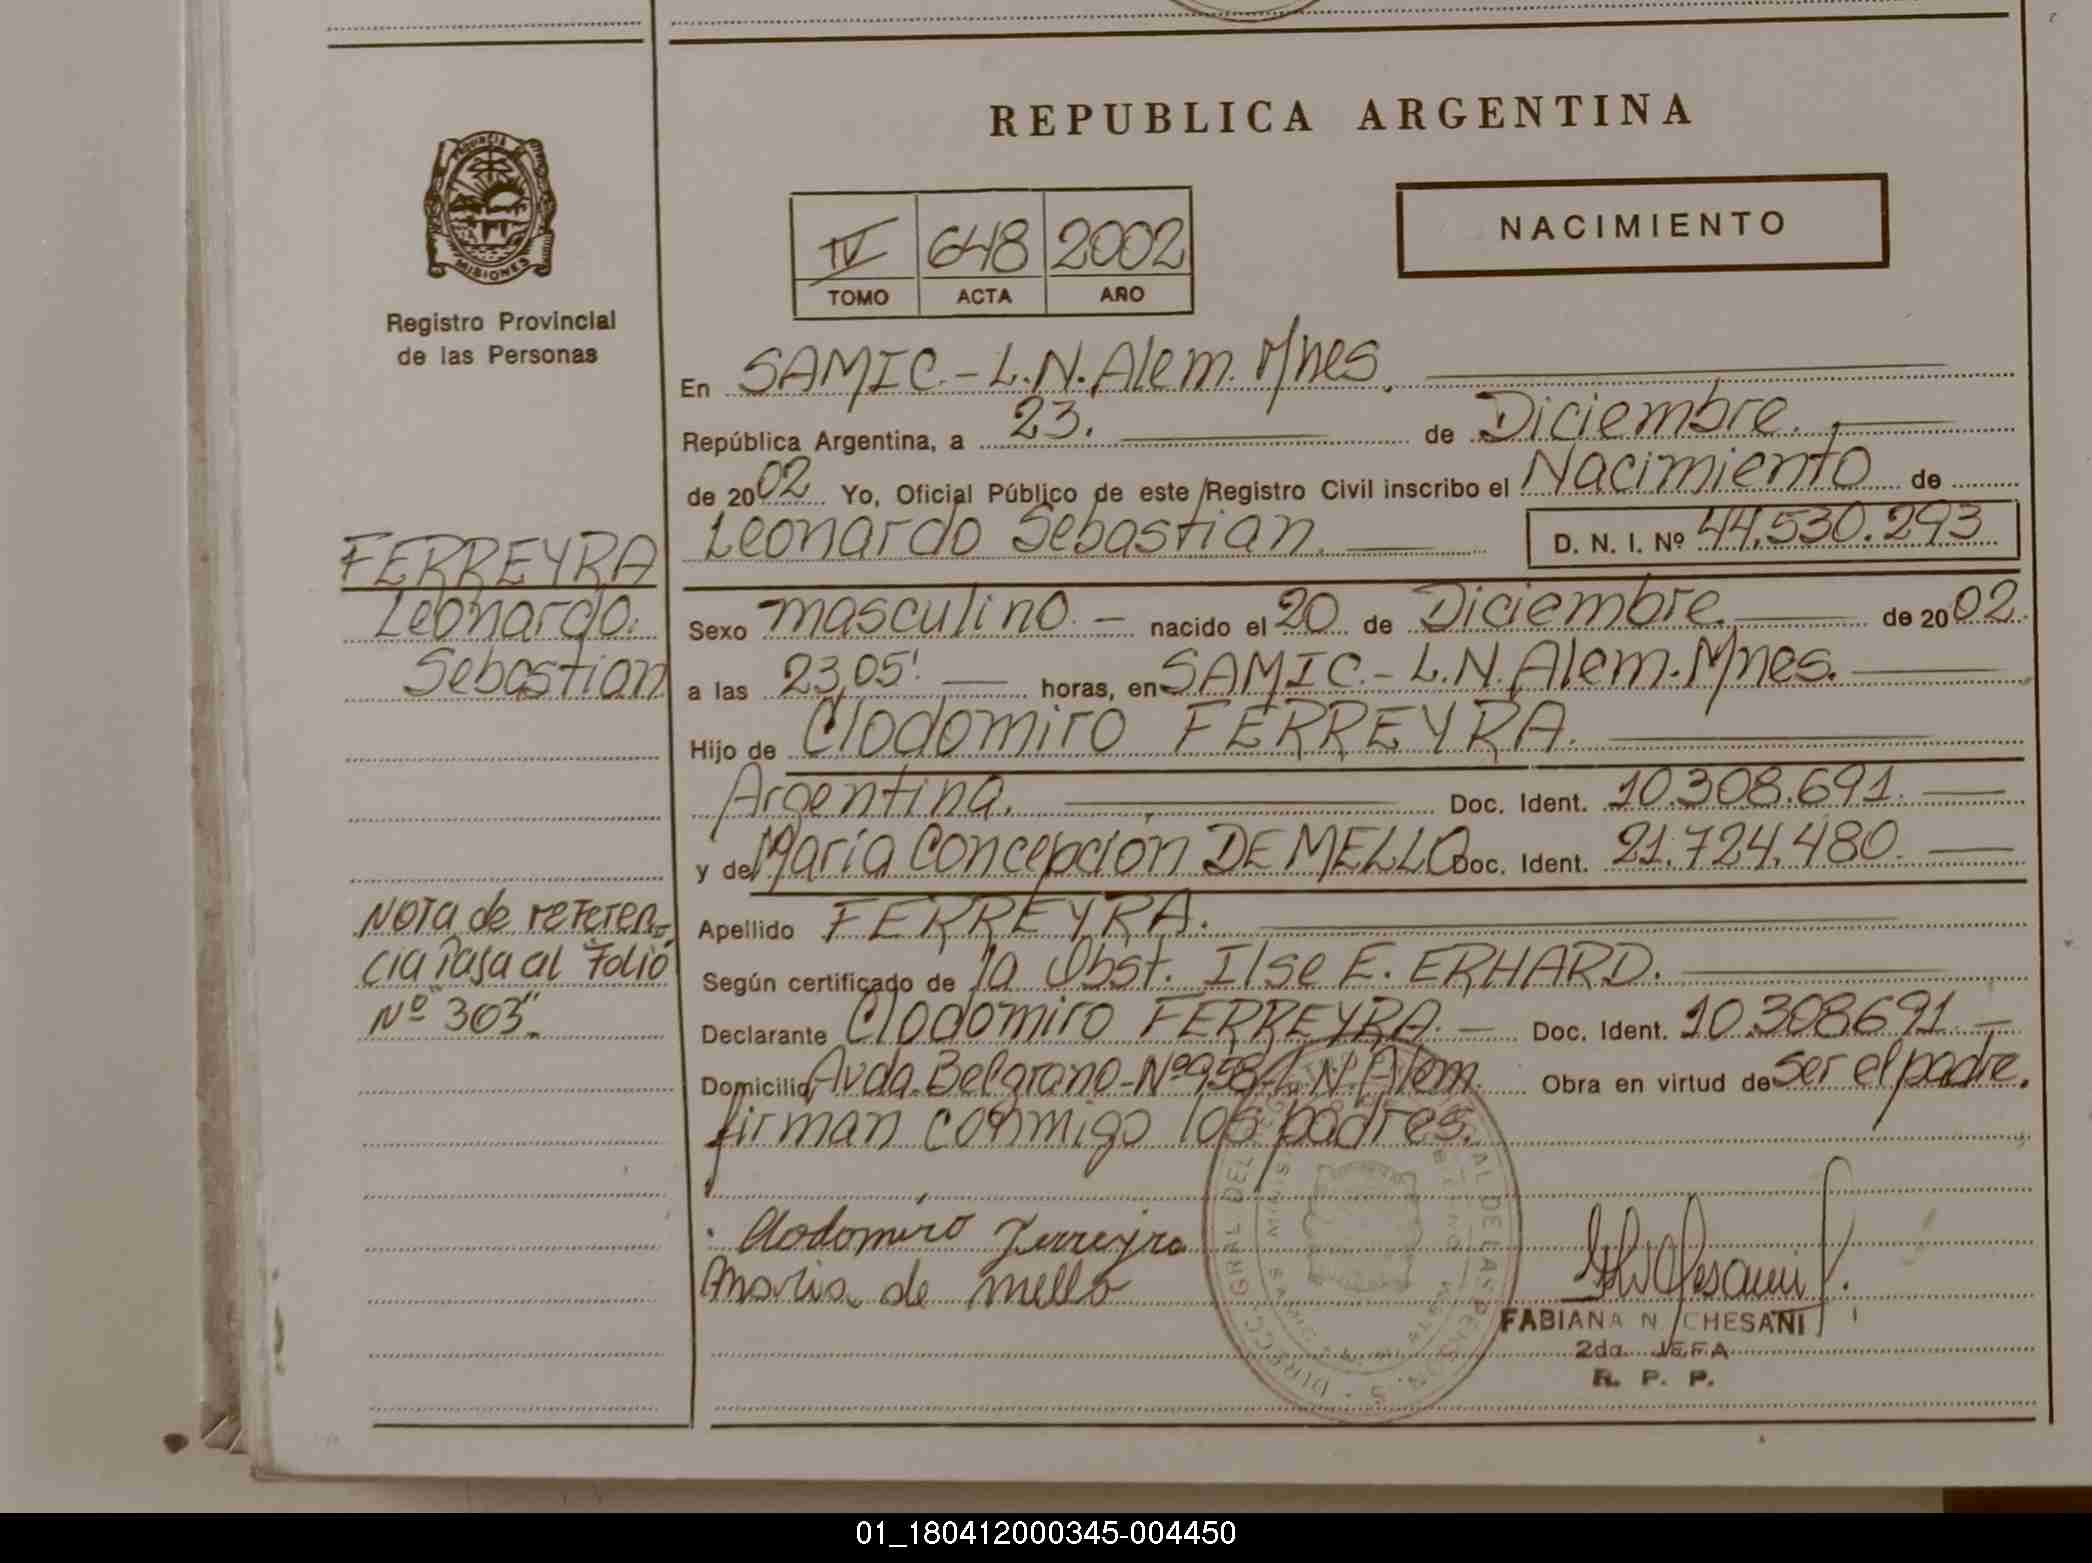 REPUBLICA ARGENTINA
PROVINCIA DE
MISIONES
Registro Provincial
de las Personas
IV 648 2002
TOMO ACTA AÑO
NACIMIENTO
En SAMIC.- L.N. Alem. Mnes.
República Argentina, a 23. de Diciembre.
de 2002 Yo, Oficial Público de este Registro Civil inscribo el Nacimiento de
Leonardo Sebastian. D. N. I. Nº 44.530.293
FERREYRA
Leonardo.
Sebastian
Sexo masculino. nacido el 20 de Diciembre. de 2002.
a las 23,05'. horas, en SAMIC.- L.N. Alem. Mnes.
Hijo de Clodomiro FERREYRA.
Argentina. Doc. Ident. 10.308.691.
y de Maria Concepción DE MELLO Doc. Ident. 21.724.480.
Nota de referen-
cia Pasa al Folio
Nº 303".
Apellido FERREYRA.
Según certificado de la Obst. Ilse E. ERHARD.
Declarante Clodomiro FERREYRA. Doc. Ident. 10.308691.
Domicilio Avda. Belgrano - Nº 958 - L.N. Alem. Obra en virtud de ser el padre.
firman conmigo los padres.
Clodomiro Ferreyra
Maria de mello
FABIANA N. CHESANI
2da. JEFA
R. P. P.
01_180412000345-004450